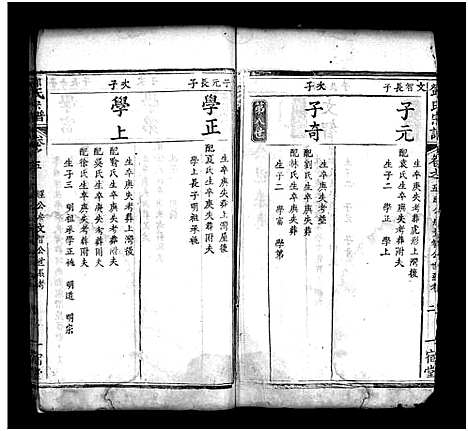 文智長子
子元
生卒庚失考葬虎形上灣後
配袁氏生卒庚失葬
生子二 學正 學上
次子
子奇
生卒庚失考塟
配劉氏生卒庚失葬
配林氏生卒庚失葬
生子二 學富 學第
第八世
子元長子
學正
生卒庚失葬上灣屋後
配夏氏生卒庚失葬附夫
學上長子明祖承祧
次子
學上
生卒庚失考葬上灣後
配喻氏生卒庚失葬附夫
配吳氏生卒庚失考葬附夫
配徐氏生卒庚失考葬附夫
生子三 明祖承學正祧 明道 明宗
氏宗譜